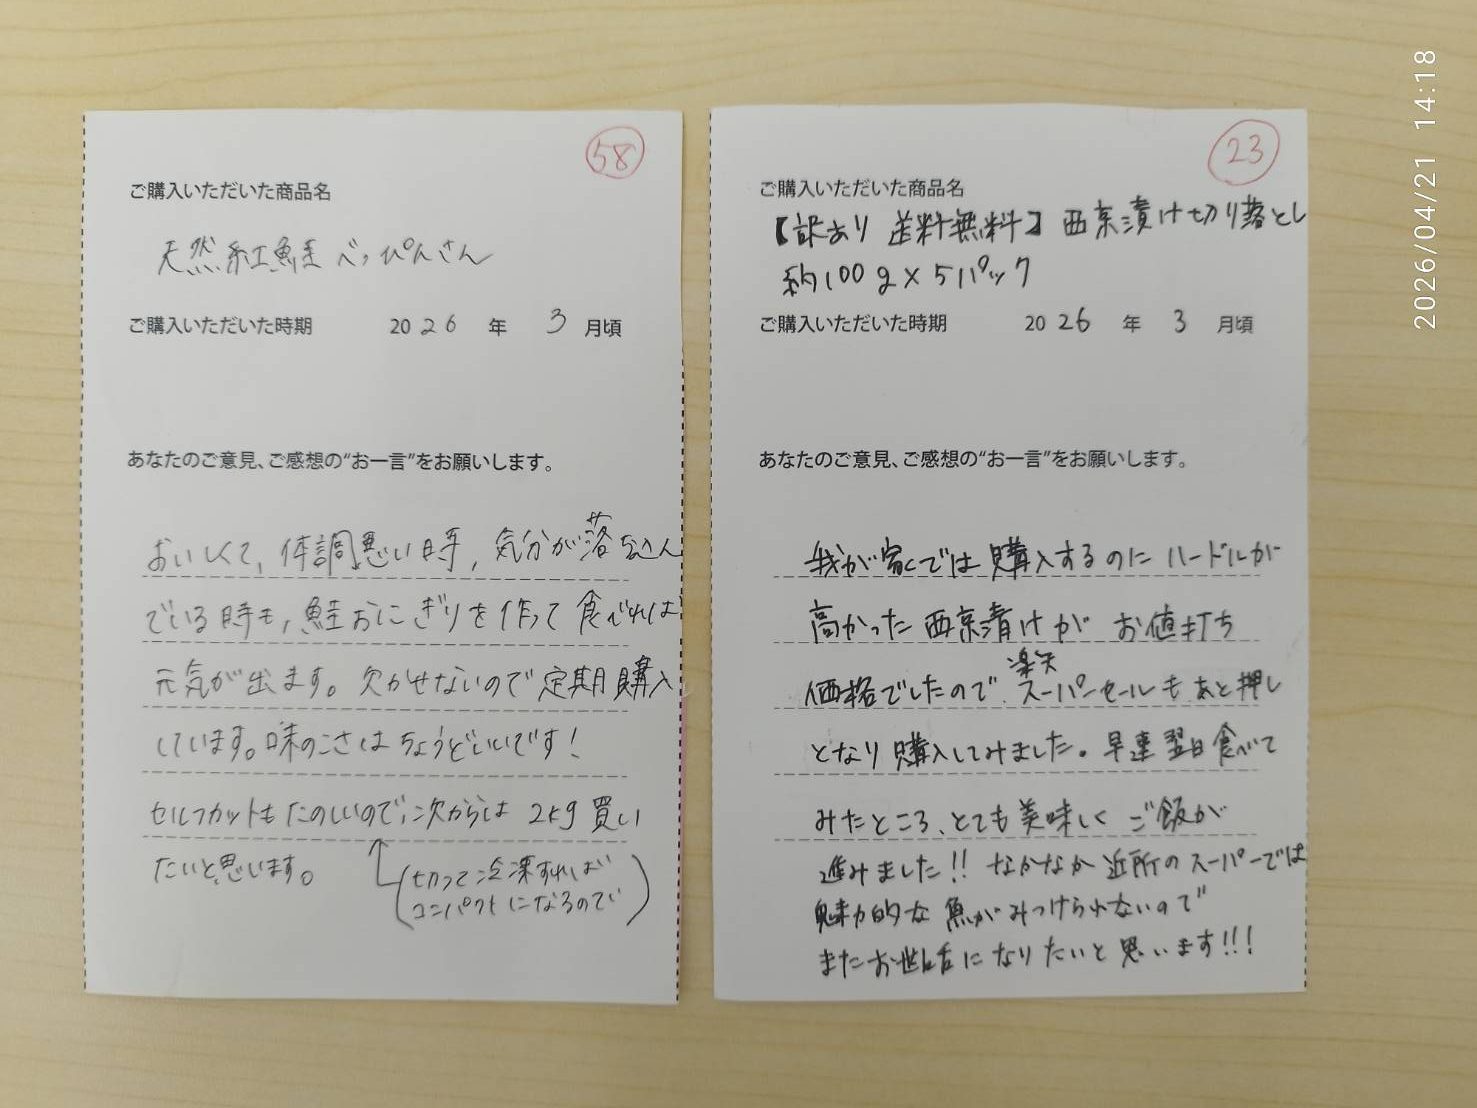 58
ご購入いただいた商品名
天然紅鮭べっぴんさん
ご購入いただいた時期 2026年 3月頃
あなたのご意見、ご感想の“お一言”をお願いします。
おいしくて、体調悪い時、気分が落ち込ん
でいる時も、鮭おにぎりを作って食べれば
元気が出ます。欠かせないので定期購入
しています。味のこさはちょうどいいです！
セルフカットもたのしいので、次からは2kg買い
たいと思います。
(切って冷凍すれば
コンパクトになるので)
23
ご購入いただいた商品名
【訳あり 送料無料】西京漬け切り落とし
約100g×5パック
ご購入いただいた時期 2026年 3月頃
あなたのご意見、ご感想の“お一言”をお願いします。
我が家では購入するのにハードルが
高かった西京漬けがお値打ち
価格でしたので、楽天スーパーセールもあと押し
となり購入してみました。早速翌日食べて
みたところ、とても美味しくご飯が
進みました!! なかなか近所のスーパーでは
魅力的な魚がみつけられないので
またお世話になりたいと思います!!!
2026/04/21 14:18